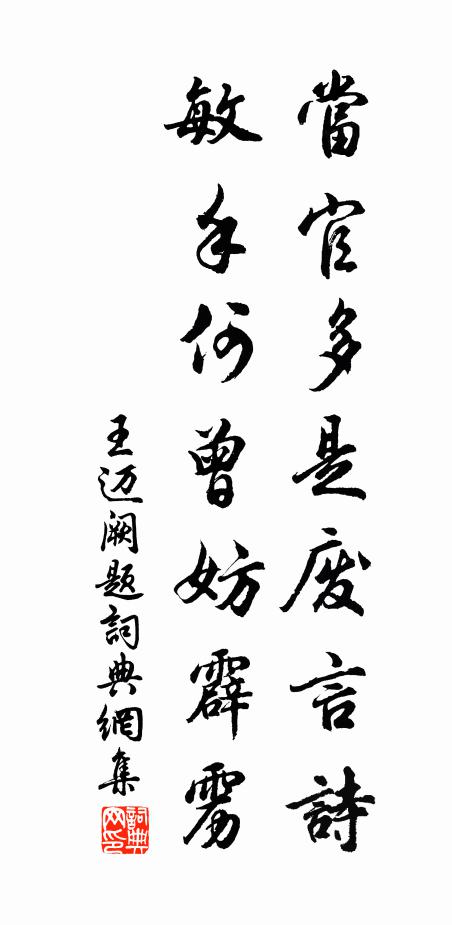 當官多是廢言詩
敏手何曾妨霹雳
王迈闕题詞典網集
詞典网印